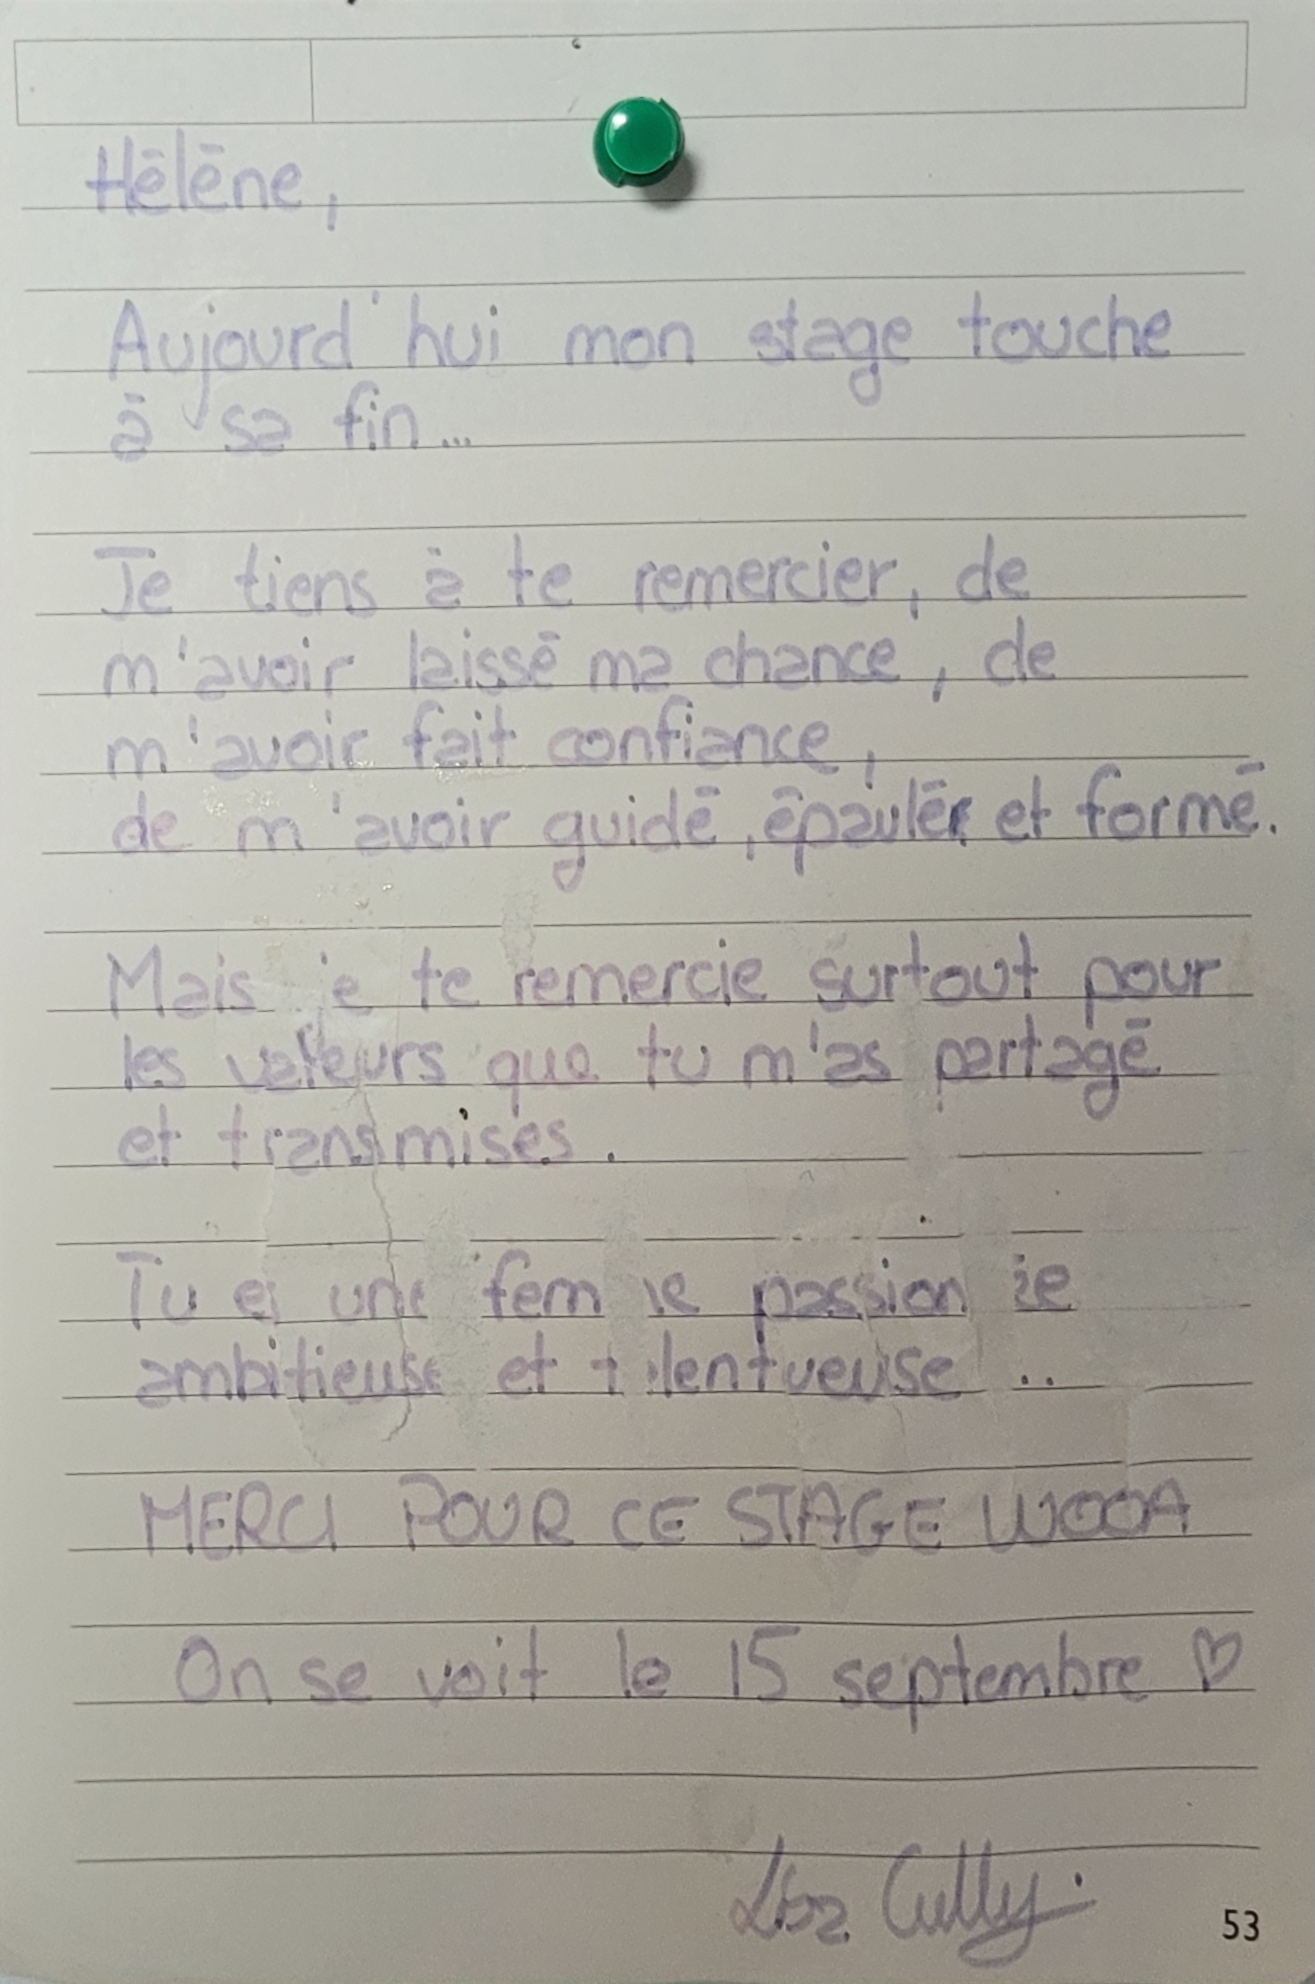 Hélène,
Aujourd'hui mon stage touche
à sa fin...
Je tiens à te remercier, de
m'avoir laissé ma chance, de
m'avoir fait confiance,
de m'avoir guidé, épauler et formé.
Mais je te remercie surtout pour
les valeurs que tu m'as partagé
et transmises.
Tu es une femme passionnée
ambitieuse et talentueuse...
MERCI POUR CE STAGE WOOA
On se voit le 15 septembre ♡
Cully
53